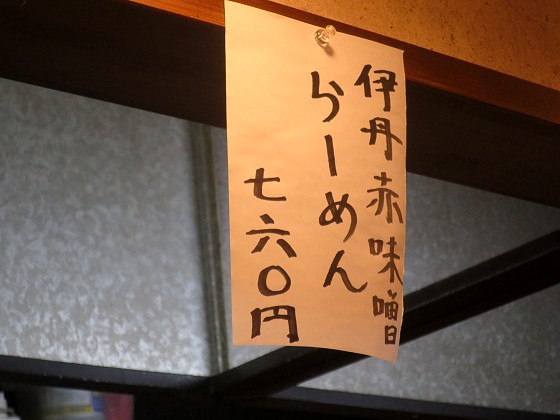 伊丹赤味噌
らーめん
七六〇円